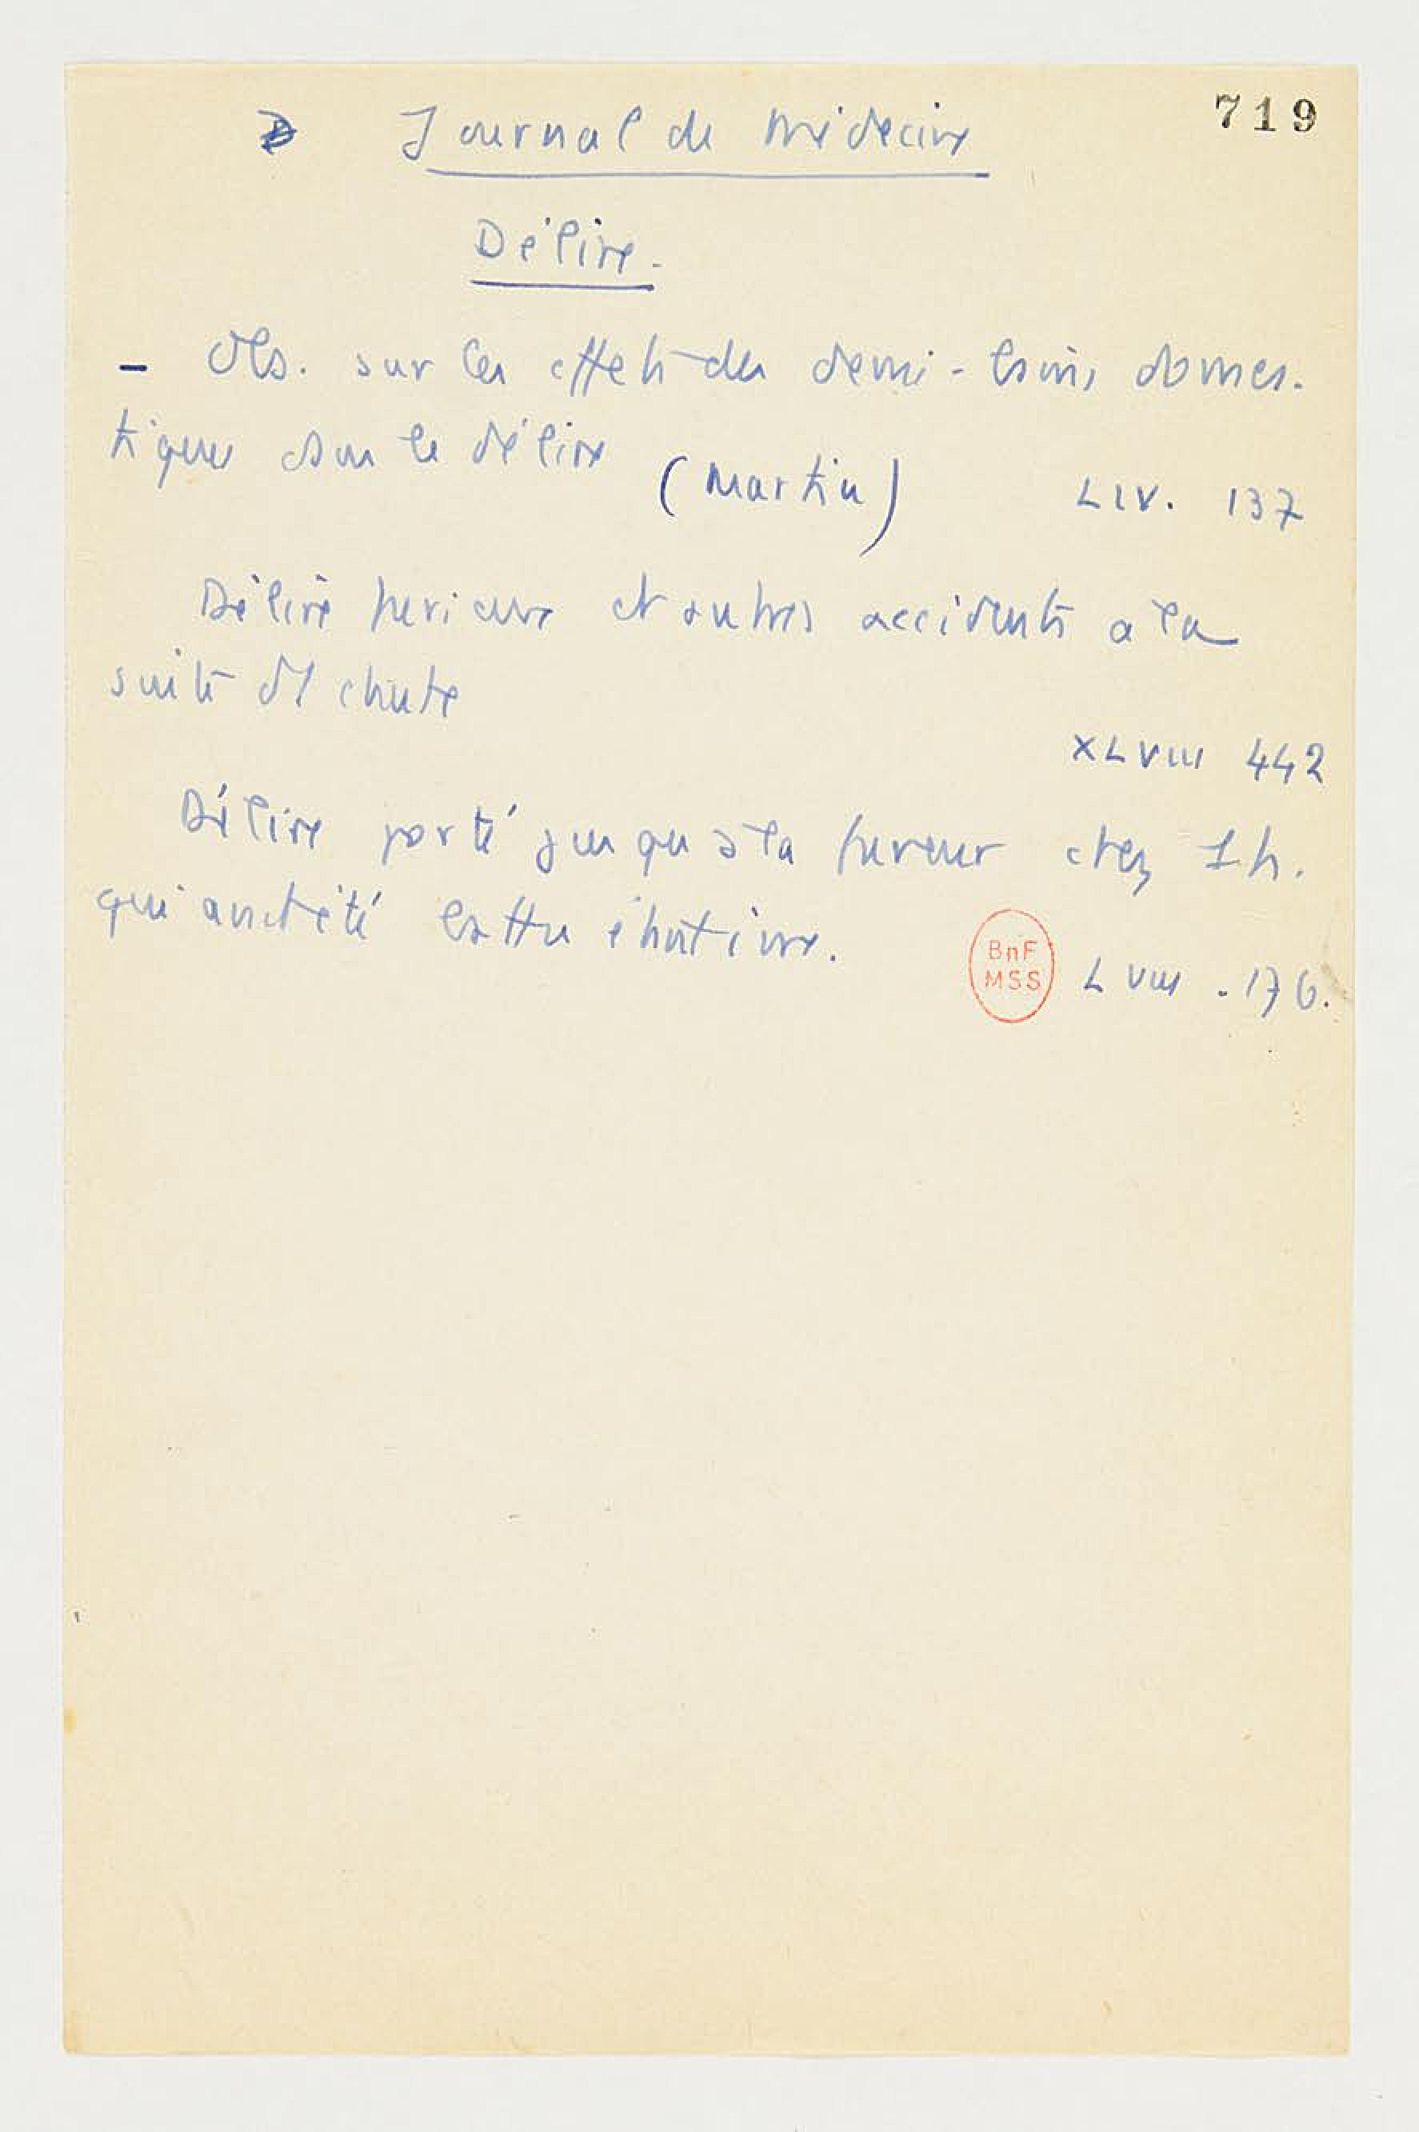 719
Journal de médecine
Délire.
- Obs. sur les effets des demi-bains domes-
tiques dans le délire (Martin) LIV. 137
Délire furieux et autres accidents a la
suite d'1 chute
XLVIII 442
Délire porté jusqu'à la fureur chez 1 h.
qui avait été battu étant ivre.
BnF
MSS
LVIII . 176.